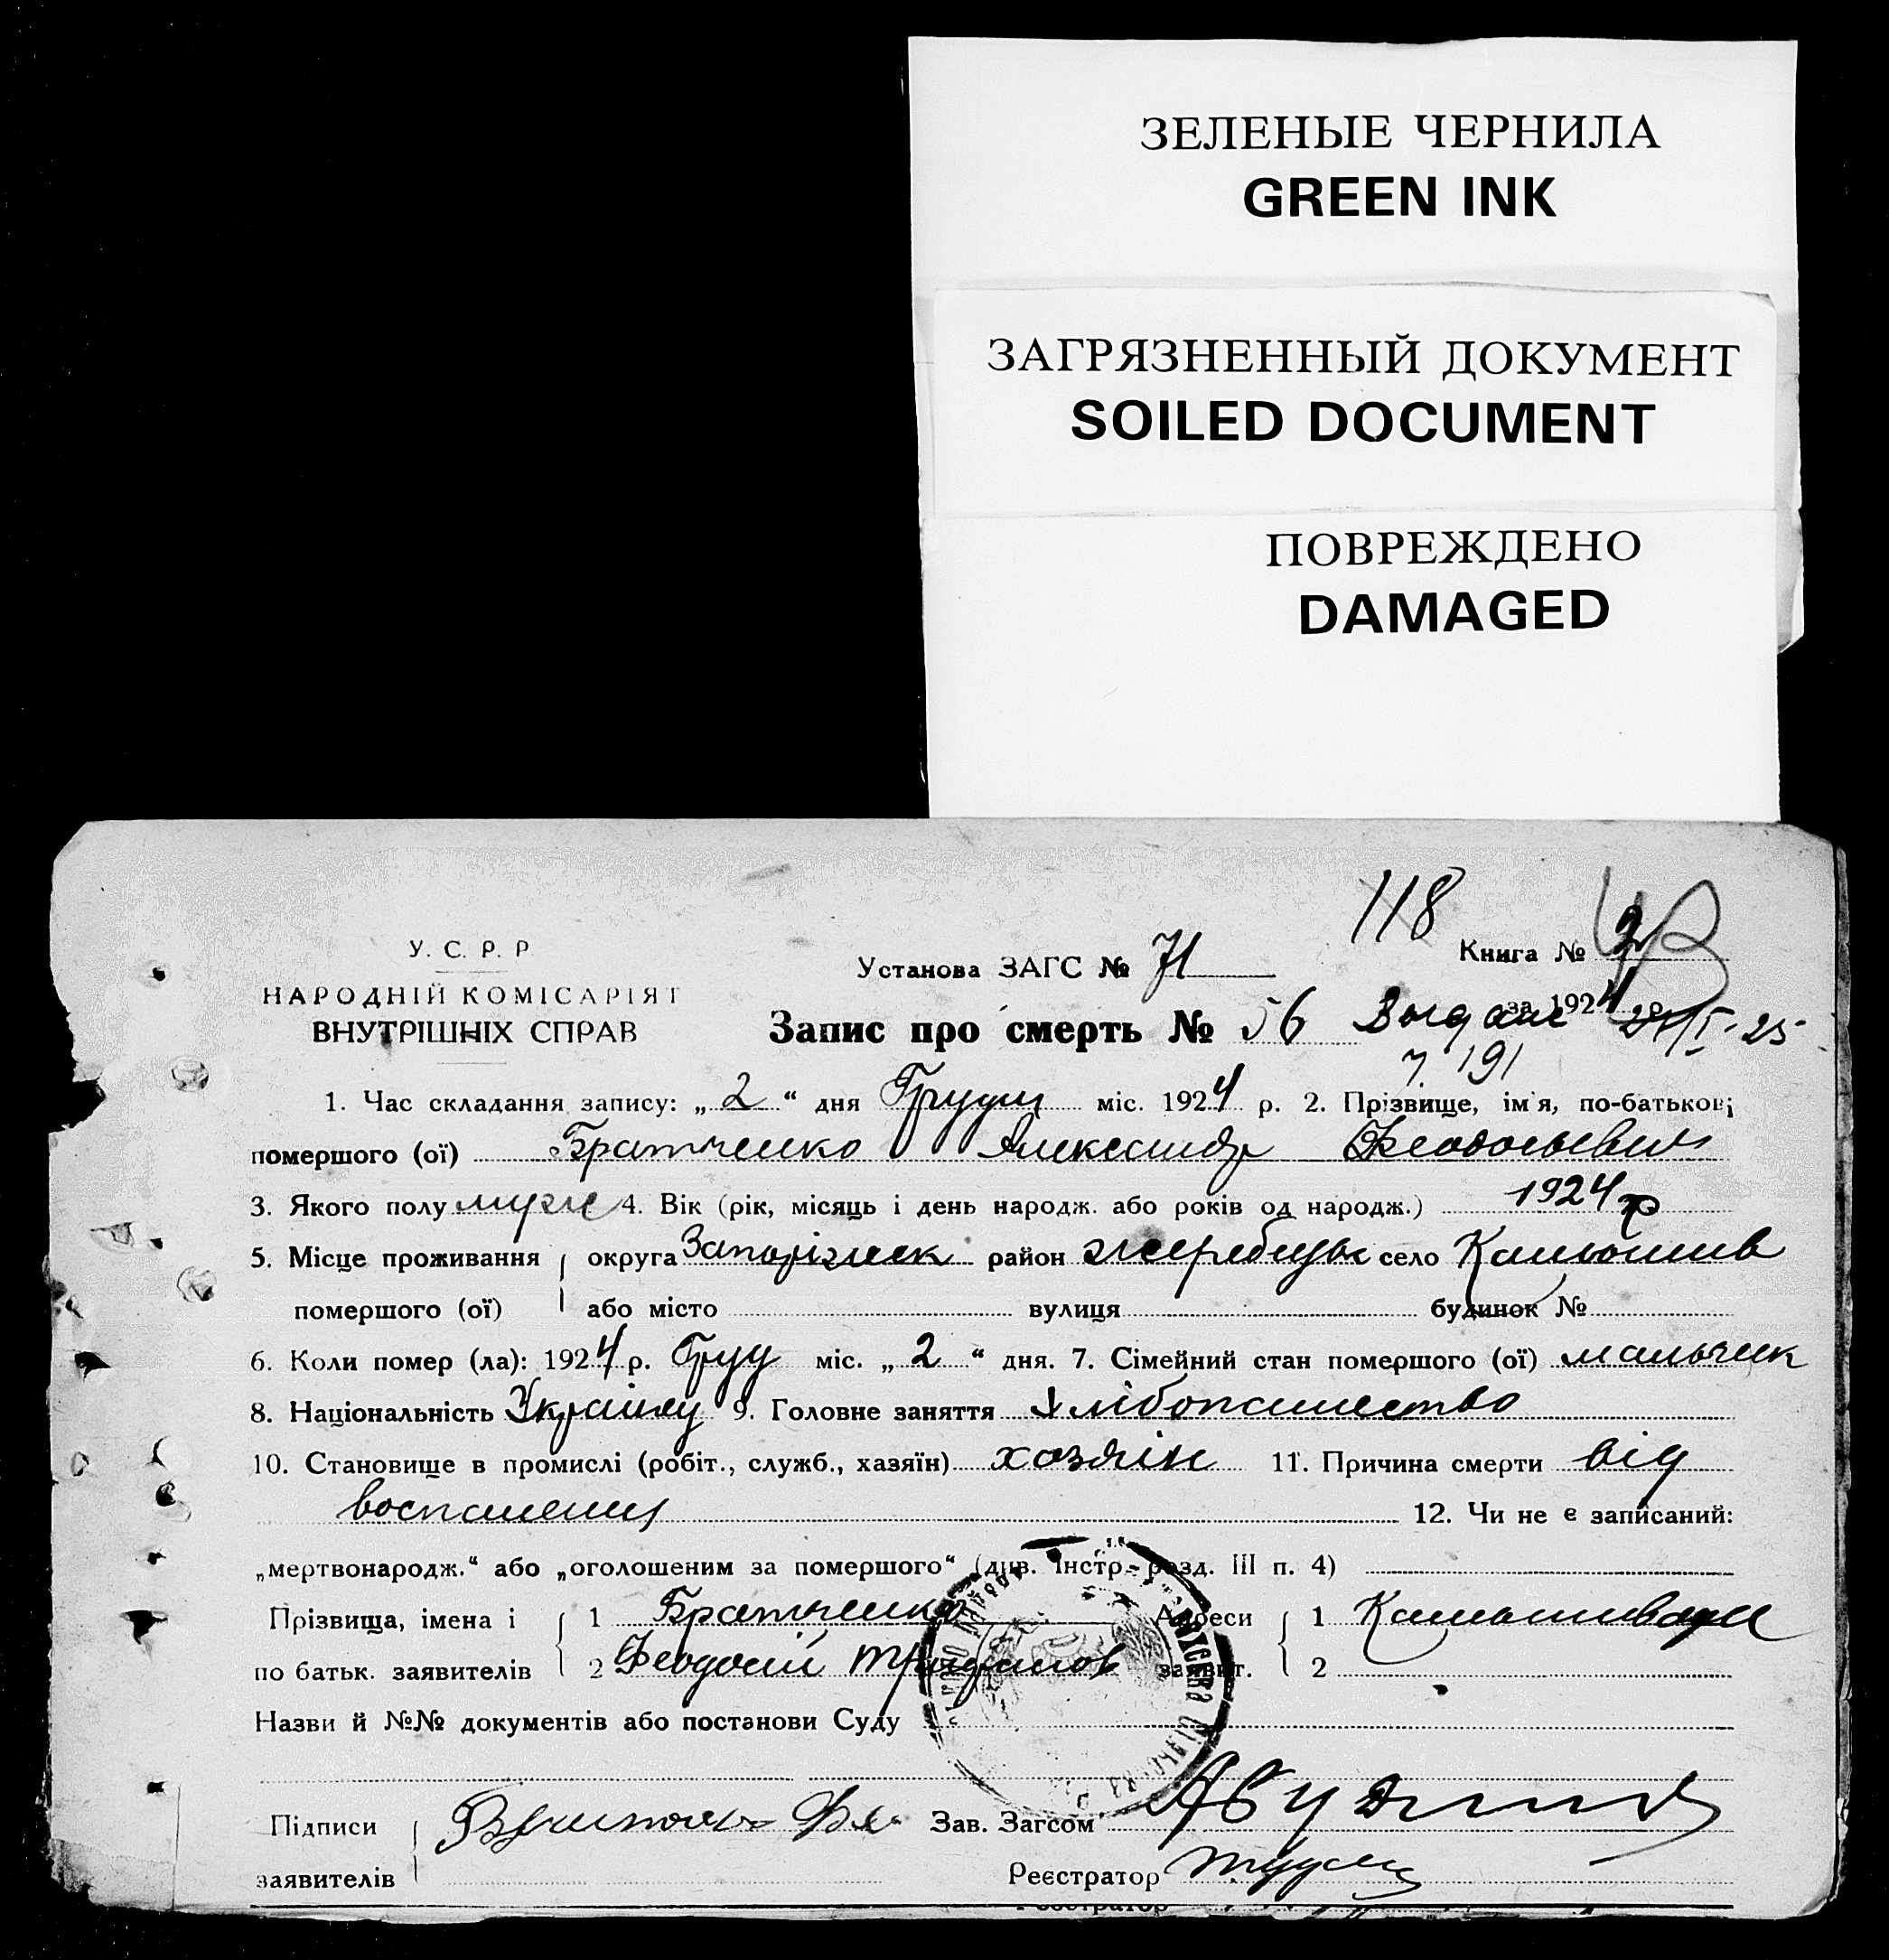 ЗЕЛЕНЫЕ ЧЕРНИЛА
GREEN INK
ЗАГРЯЗНЕННЫЙ ДОКУМЕНТ
SOILED DOCUMENT
ПОВРЕЖДЕНО
DAMAGED
118
У. С. Р. Р
НАРОДНІЙ КОМІСАРІЯТ
ВНУТРІШНІХ СПРАВ
Установа ЗАГС № 71
Книга № 2
за 1924 р.
Запис про смерть № 56
191
1. Час складання запису: „ 2 “ дня Грудня міс. 1924 р. 2. Прізвище, ім'я, по-батькові
помершого (ої) Братченко Александр Феодосьевич
3. Якого полу муж 4. Вік (рік, місяць і день народж. або років од народж.) 1924 р
5. Місце проживання округа Запоріжск район Жеребецьк село Камышев
помершого (ої) або місто вулиця будинок №
6. Коли помер (ла): 1924 р. Груд міс. „ 2 “ дня. 7. Сімейний стан помершого (ої) мальчик
8. Національність 9. Головне заняття Хлібопашество
10. Становище в промислі (робіт., служб., хазяїн) хозяін 11. Причина смерти від
воспаления 12. Чи не є записаний:
„мертвонародж.“ або „оголошеним за помершого“ (див. Інстр. розд. III п. 4)
Прізвища, імена і 1 Братченко Адреси 1
по батьк. заявителів 2 Феодосій заявит. 2
Назви й №№ документів або постанови Суду
Підписи Зав. Загсом
заявителів Реєстратор
Реєстратор